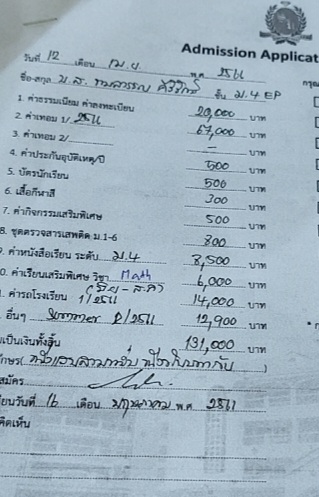 Admission Applicat
วันที่ 12 เดือน เม.ย. พ.ศ. 2561
ชื่อ-สกุล น.ส. ชั้น ม.4 EP
1. ค่าธรรมเนียม ค่าลงทะเบียน 20,000 บาท
2. ค่าเทอม 1/2561 67,000 บาท
3. ค่าเทอม 2/ - บาท
4. ค่าประกันอุบัติเหตุ/ปี 500 บาท
5. บัตรนักเรียน 500 บาท
6. เสื้อกีฬาสี 300 บาท
7. ค่ากิจกรรมเสริมพิเศษ 500 บาท
8. ชุดตรวจสารเสพติด ม.1-6 800 บาท
9. ค่าหนังสือเรียน ระดับ ม.4 8,500 บาท
0. ค่าเรียนเสริมพิเศษ วิชา Math 6,000 บาท
ค่ารถโรงเรียน 1/2561 14,000 บาท
อื่นๆ Summer 2/2561 12,900 บาท
เป็นเงินทั้งสิ้น 131,000 บาท
สมัคร
วันที่ 16 เดือน พฤษภาคม พ.ศ. 2561
คิดเห็น